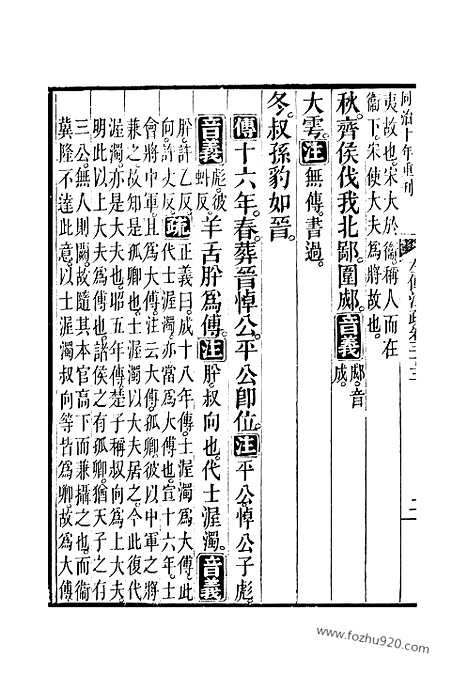 同治十年重刊
左傳注疏卷三十三
二
夷故也。宋大於衞。稱人而在
衞下。宋使大夫爲將故也。
秋。齊侯伐我北鄙。圍郕。音義郕。音
成。
大雩。注無傳書過。
冬。叔孫豹如晉。
傳十六年。春。葬晉悼公。平公卽位。注平公。悼公子彪。
音義彪。彼
虯反。羊舌肸爲傅。注肸。叔向也。代士渥濁。音義
肸。許乙反。
向。許丈反。疏正義曰。成十八年傳。士渥濁爲大傅。此
代士渥濁。亦當爲大傅也。宣十六年。士
會將中軍。且爲大傅。注云大傅。孤卿。彼以中軍之將
兼之。故知是孤卿也。士渥濁以大夫居之。今此復代
渥濁。亦是大夫也。昭五年傳。楚子稱叔向爲上大夫。
明此以上大夫爲大傅也。諸侯之有孤卿。猶天子之有
三公。無人則闕。故隨其本官高下而兼攝之也。而衞
冀隆不達此意。以士渥濁叔向等皆爲卿。故爲大傅
www.fozhu920.com